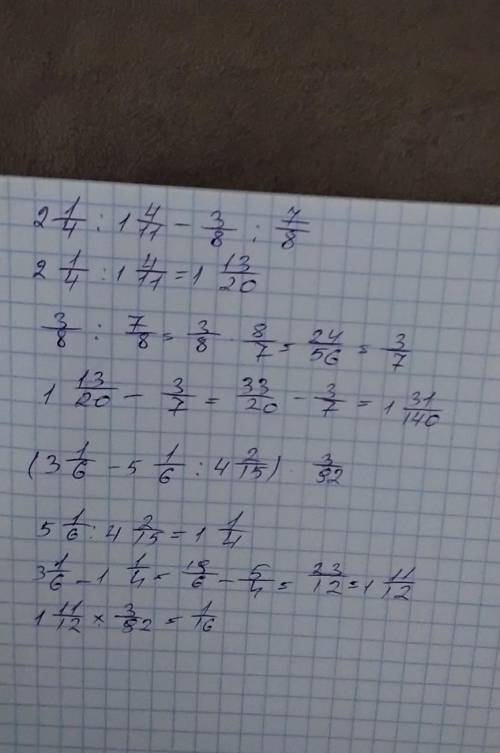 2 1/4 : 1 4/11 - 3/8 : 7/8
2 1/4 : 1 4/11 = 1 13/20
3/8 : 7/8 = 3/8 · 8/7 = 24/56 = 3/7
1 13/20 - 3/7 = 33/20 - 3/7 = 1 31/140
(3 1/6 - 5 1/6 : 4 2/15) · 3/92
5 1/6 : 4 2/15 = 1 1/4
3 1/6 - 1 1/4 = 19/6 - 5/4 = 23/12 = 1 11/12
1 11/12 × 3/92 = 1/16